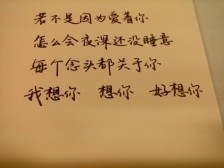 若不是因为爱着你
怎么会夜深还没睡意
每个念头都关于你
我想你 想你 好想你